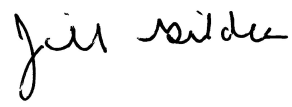 Jill Gildea